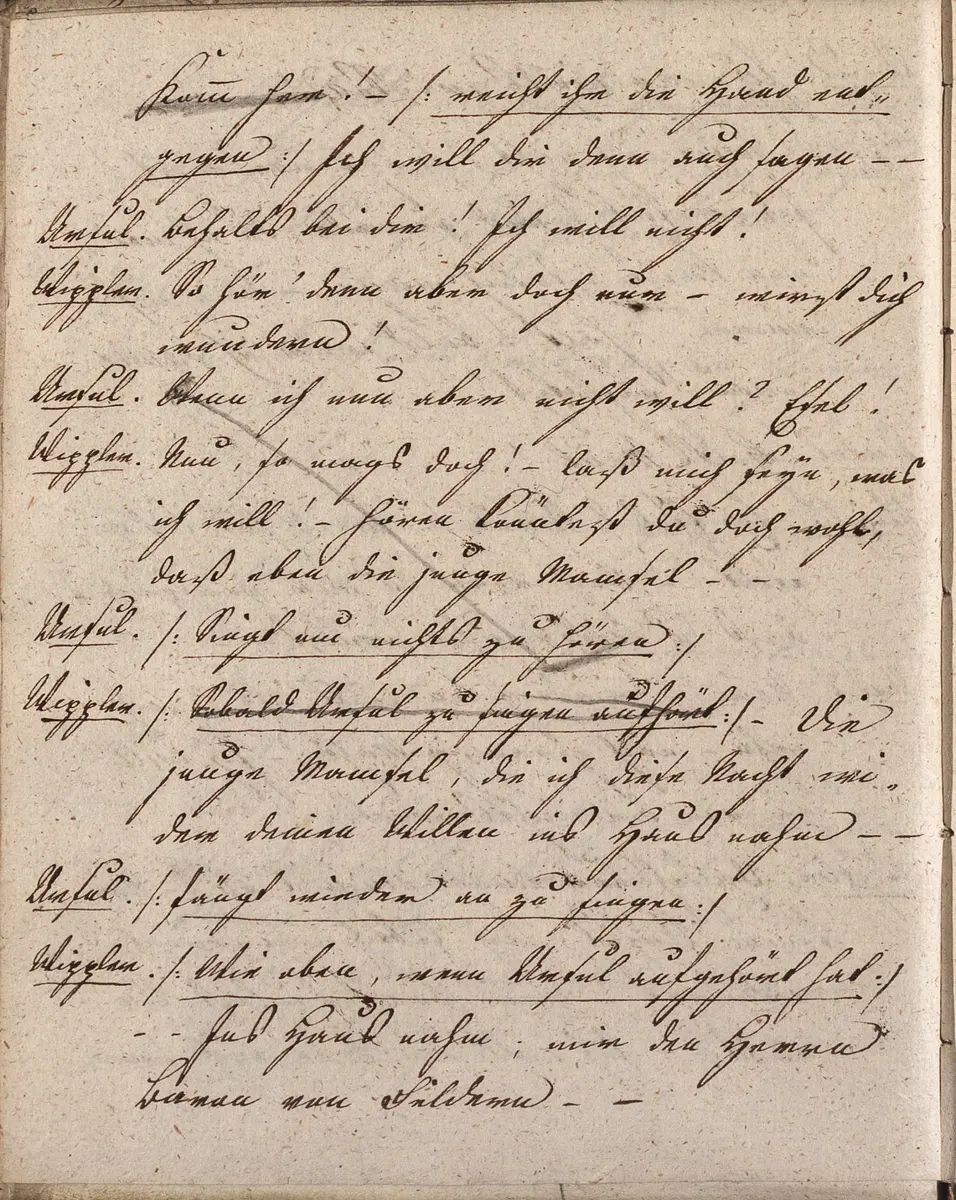 Komm her! – /: reicht ihr die Hand ent„
gegen :/ Ich will dir denn auch sagen – –
Ursul. Behalts bei dir! Ich will nicht!
Wippler. So hör' denn aber doch nur – wirst dich
wundern!
Ursul. Wenn ich nun aber nicht will? Esel!
Wippler. Nun, so mags doch! – laß mich seyn, was
ich will! – hören könntest du doch wohl,
daß eben die junge Mamsel – –
Ursul. /: Singt um nichts zu hören :/
Wippler. /: Sobald Ursul zu singen aufhört :/ – Die
junge Mamsel, die ich diese Nacht wi„
der deinen Willen ins Haus nahm – –
Ursul. /: fängt wieder an zu singen :/
Wippler. /: Wie oben, wenn Ursul aufgehört hat :/
– – Ins Haus nahm, mir den Herrn
Baron von Feldern – –